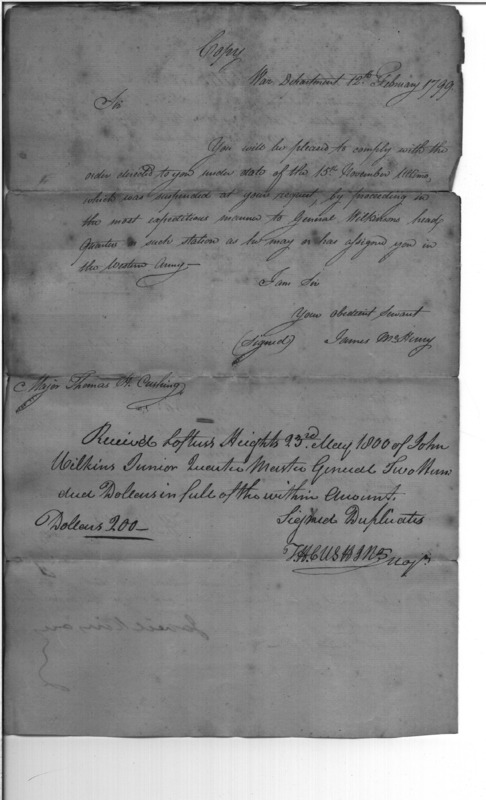 Copy
War Department 12th February 1799
Sir
You will be pleased to comply with the
order directed to you under date of the 15th November ultimo,
which was suspended at your request, by proceeding in
the most expeditious manner to General Wilkinsons head
quarters or such station as he may or has assigned you in
the Western Army—
I am Sir
Your obedient servant
(Signed) James McHenry
Major Thomas H. Cushing
Received Loftuss Heights 23rd May 1800 of John
Wilkins Junior Quarter Master General Two Hun
dred Dollars in full of the within Amount
Dollars 200— Signed Duplicates
T.H. CUSHING Majr